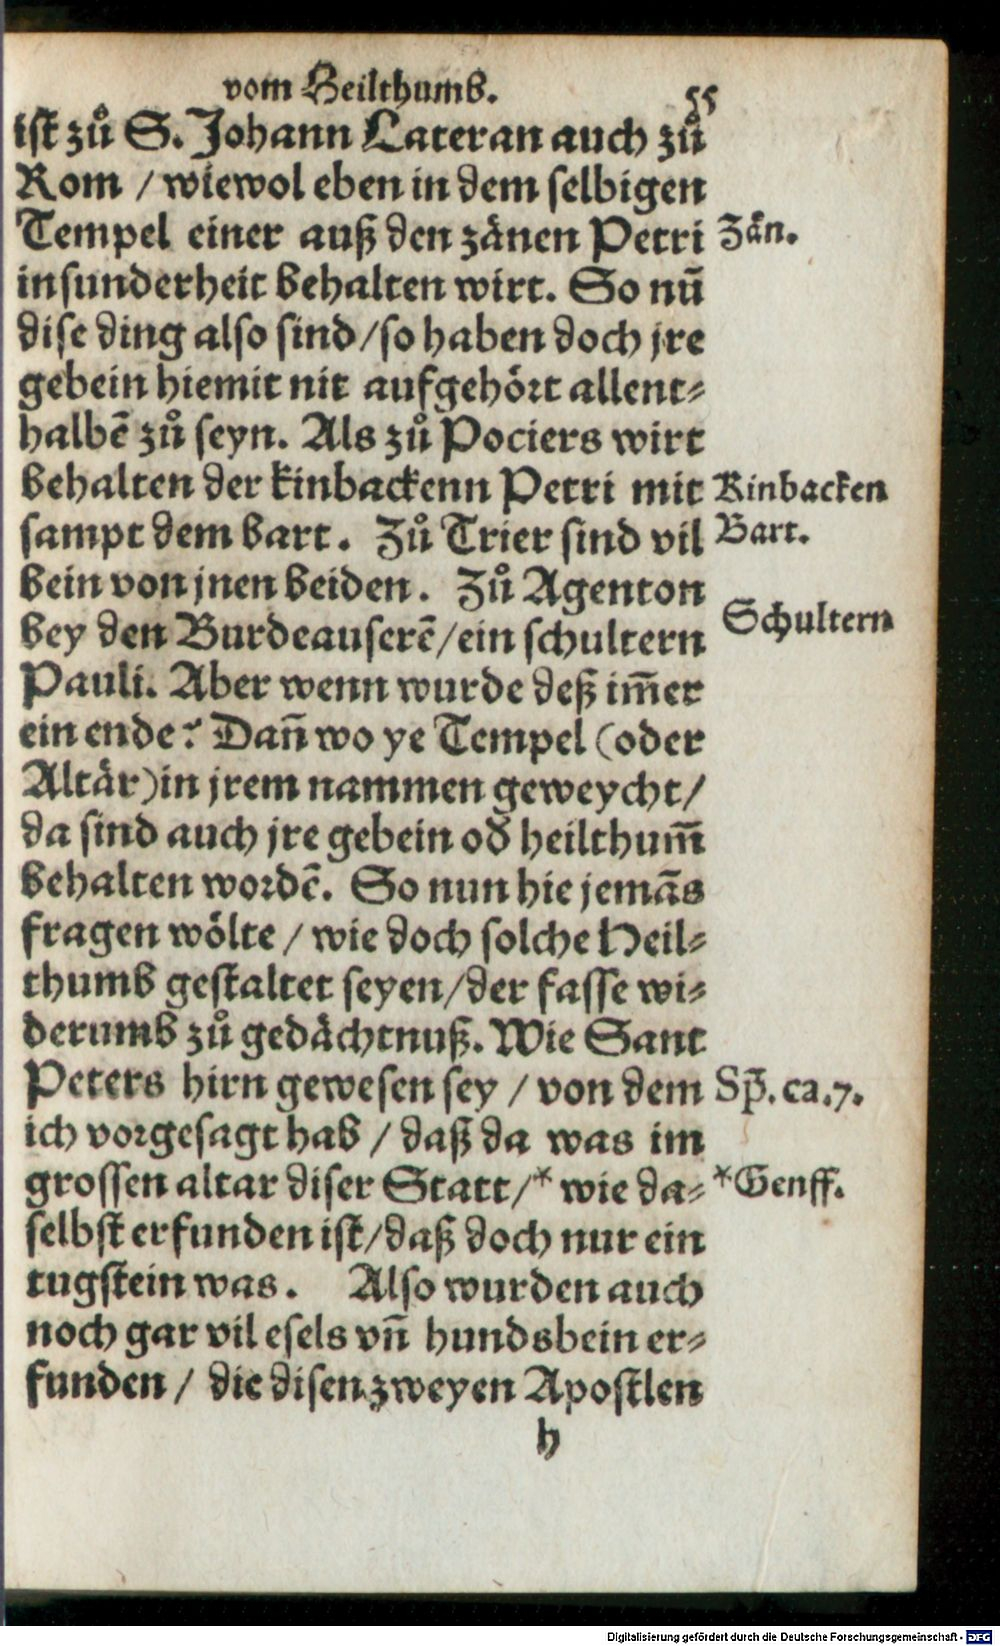 vom Heilthumb.
55
ist zů S. Johann Lateran auch zů
Rom / wiewol eben in dem selbigen
Tempel einer auß den zänen Petri
Zän.
insunderheit behalten wirt. So nū
dise ding also sind / so haben doch jre
gebein hiemit nit aufgehört allent⸗
halbē zů seyn. Als zů Pociers wirt
behalten der kinbackenn Petri mit
Kinbacken
sampt dem bart. Zů Trier sind vil
Bart.
bein von jnen beiden. Zů Agenton
bey den Burdeauserē / ein schultern
Schultern
Pauli. Aber wenn wurde deß im̄er
ein ende? Dan̄ wo ye Tempel (oder
Altär) in jrem nammen geweycht /
da sind auch jre gebein od̕ heilthum̄
behalten wordē. So nun hie jemās
fragen wölte / wie doch solche Heil⸗
thumb gestaltet seyen / der fasse wi⸗
derumb zů gedächtnuß. Wie Sant
Peters hirn gewesen sey / von dem
Sp̄. ca. 7.
ich vorgesagt hab / daß da was im
grossen altar diser Statt / * wie da⸗
* Genff.
selbst erfunden ist / daß doch nur ein
tugstein was. Also wurden auch
noch gar vil esels vn̄ hundsbein er⸗
funden / die disen zweyen Apostlen
h
Digitalisierung gefördert durch die Deutsche Forschungsgemeinschaft - DFG